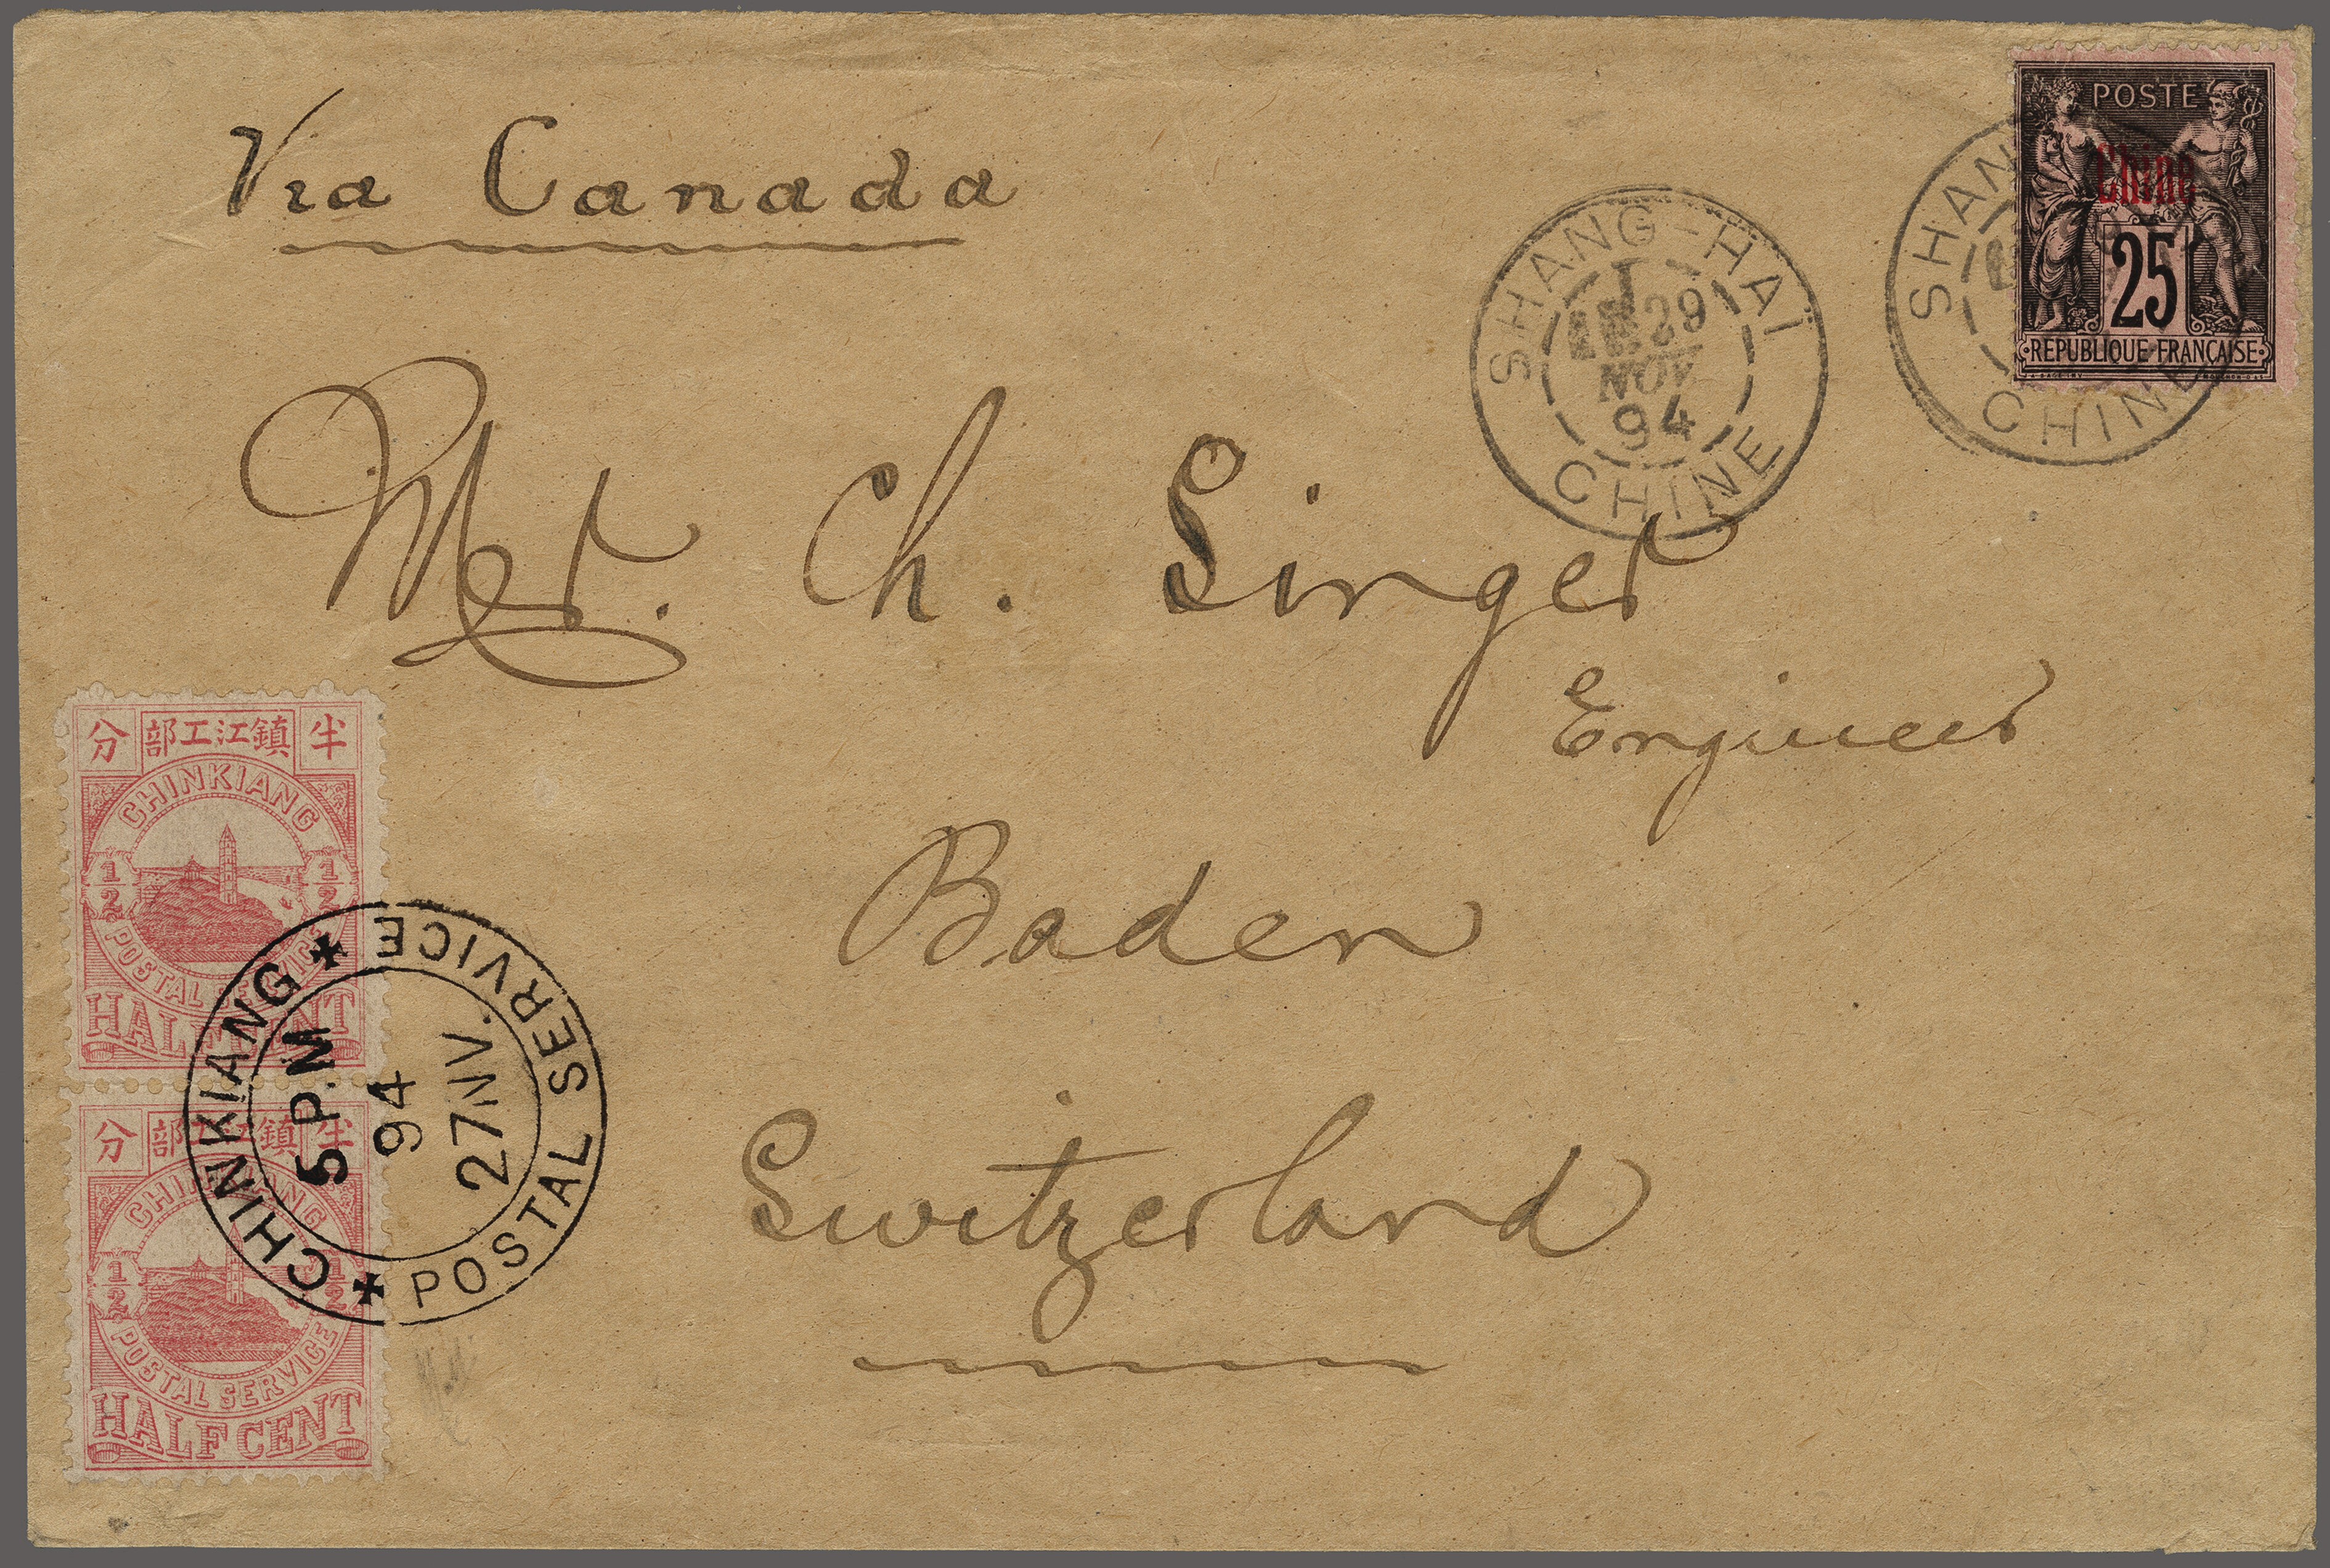 Via Canada
POSTE
Chine
25
REPUBLIQUE FRANÇAISE
SHANG-HAÏ
29
NOV.
94
CHINE
SHAN
CHINE
Mr. Ch. Singer
Engineer
Baden
Switzerland
分 部工江鎮 半
CHINKIANG
1/2 1/2
POSTAL SERVICE
HALF CENT
CHINKIANG
POSTAL SERVICE
5 P.M
94
27 NV.
分 部工江鎮 半
CHINKIANG
1/2 1/2
POSTAL SERVICE
HALF CENT